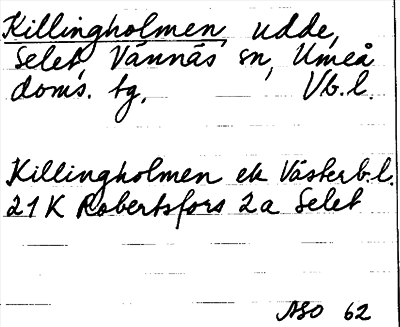 Killingholmen, udde,
Selet, Vännäs sn, Umeå
doms. tg. Vb.l.
Killingholmen ek Västerb.l.
21K Robertsfors 2a Selet
ASO 62